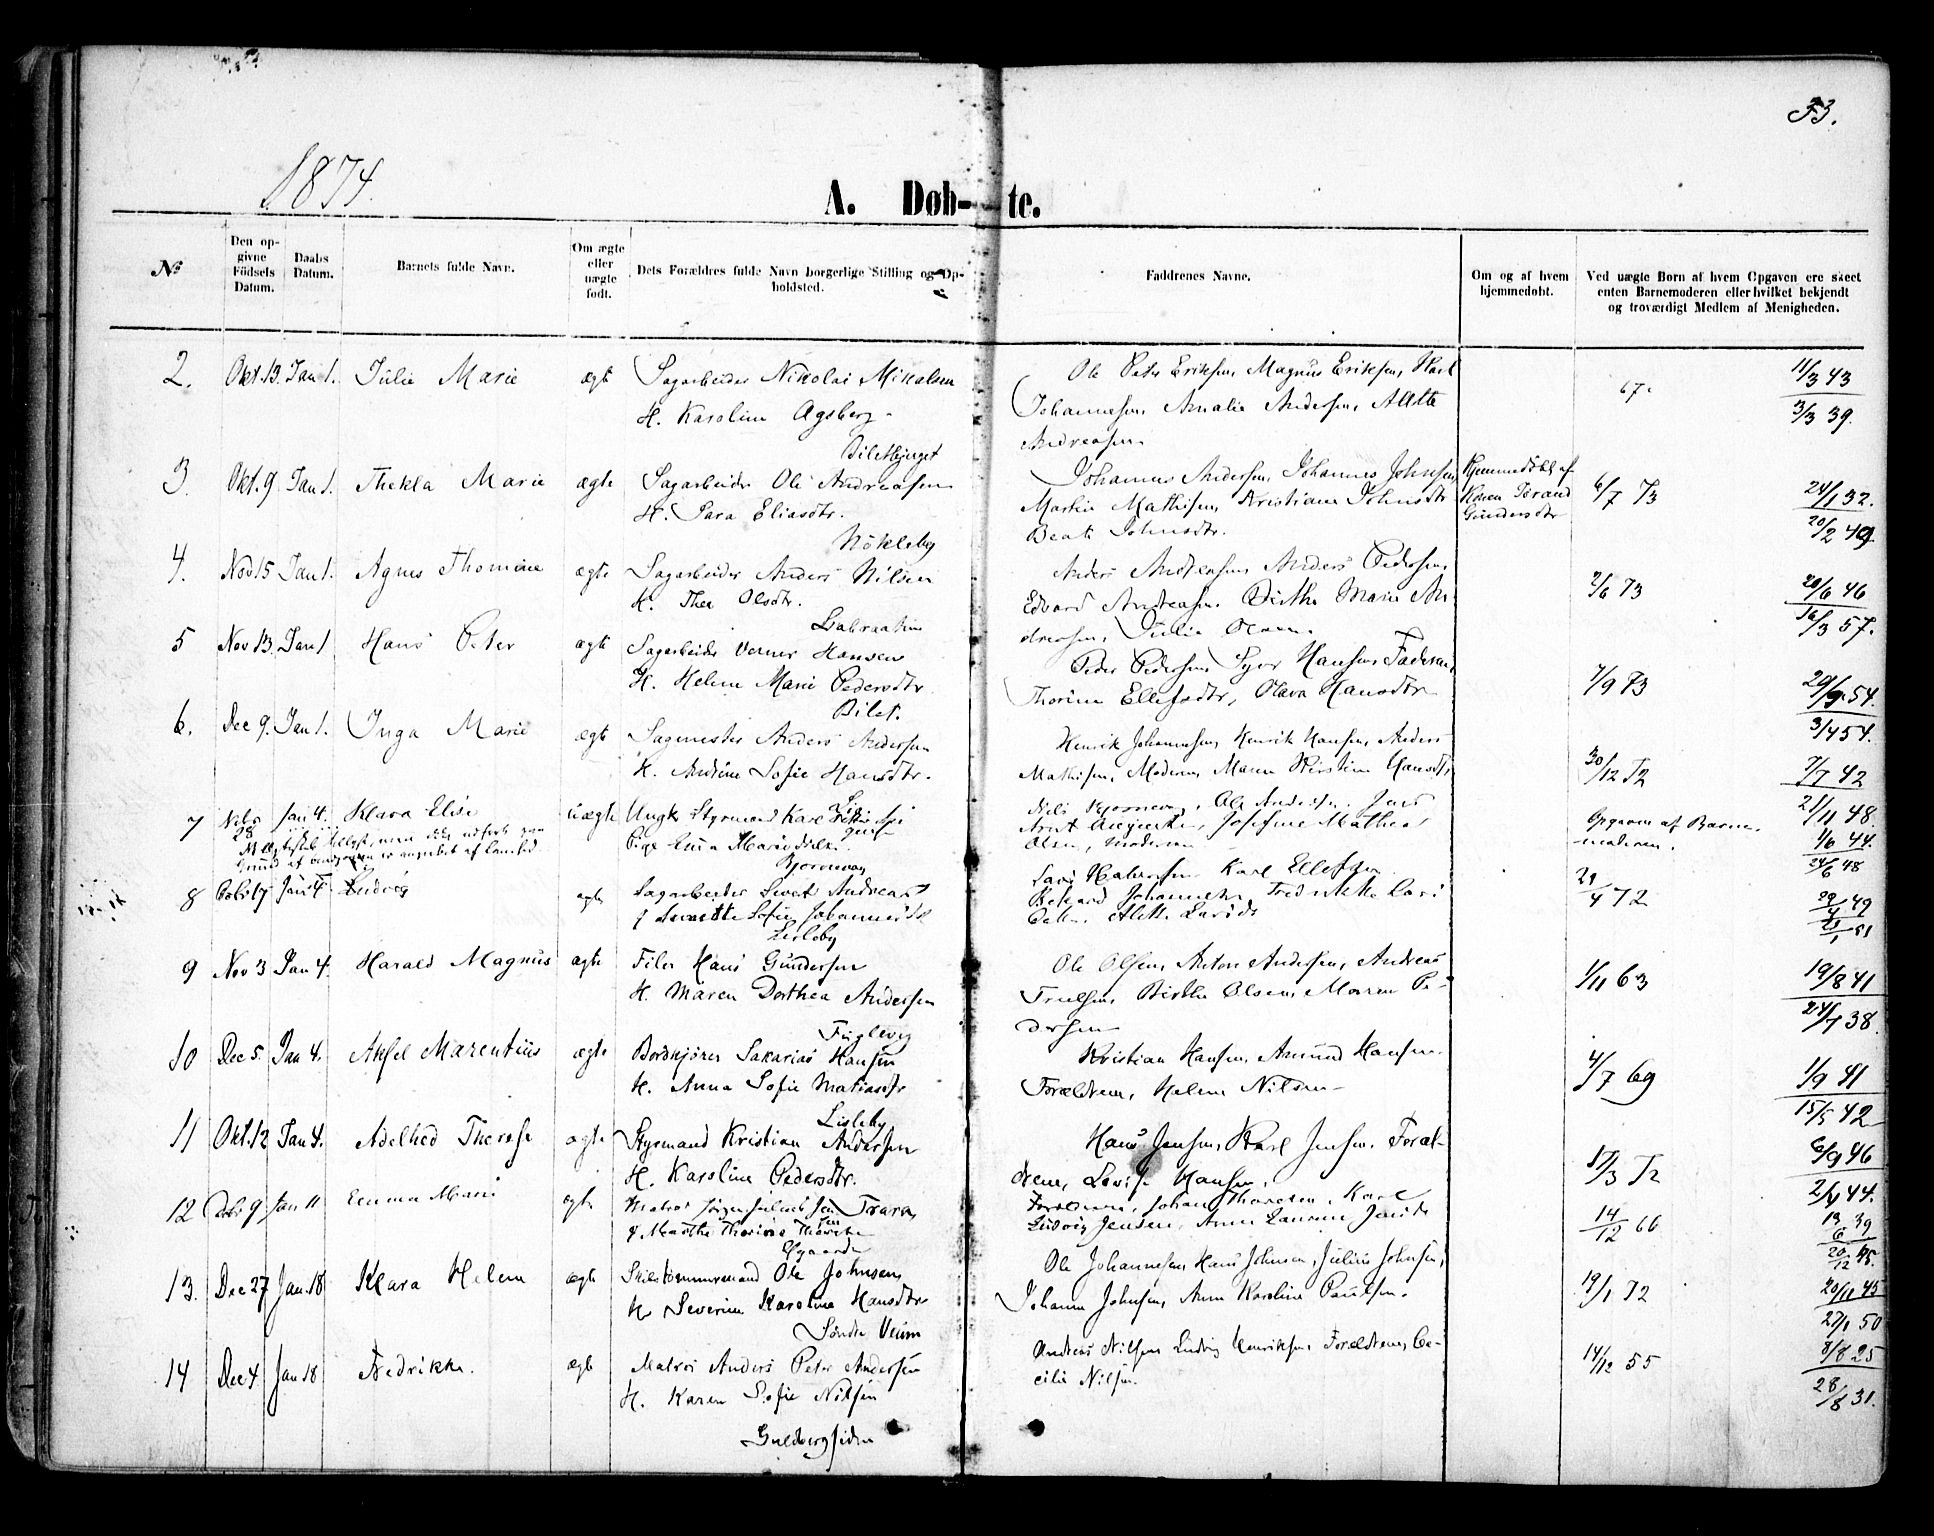 33.
1874.
A. Døb- te.
№
Den opgivne Födsels Datum.
Daabs Datum.
Barnets fulde Navn.
Om ægte eller uægte født.
Dets Forældres fulde Navn borgerlige Stilling og Opholdsted.
Faddrenes Navne.
Om og af hvem hjemmedøbt.
Ved uægte Børn af hvem Opgaven ere skeet enten Barnemoderen eller hvilket bekjendt og troværdigt Medlem af Menigheden.
2. Okt. 13. Jan 1. Julie Marie ægte Sagarbeider Nikolai Mikalsen
H. Karoline Agsberg
Ole Peter Eriksen, Magnus Eriksen, Karl
Johannesen, Amalie Andersen, Alette
Andreasen
67.
11/3 43
3/3 39.
3. Okt. 9 Jan 1. Thekla Marie ægte Sagarbeider Ole Andreasen
H. Sara Eliasdtr.
Nökleby
Johannes Andersen, Johannes Johnsen,
Martin Mathisen, Kristiane Johnsdtr
Beate Johnsdtr.
Hjemmedöbt af
Konen Torand
Gundersdtr
6/7 73
24/1 32.
20/2 49
4. Nov 15 Jan 1. Agnes Thomine ægte Sagarbeider Anders Nilsen
H. Thea Olsdtr.
Labraaten
Anders Andersen, Anders Pedersen,
Edvard Andreasen, Birthe Marie An-
dreasen, Julie Olsen.
2/6 73
20/6 46
16/3 57.
5 Nov 13. Jan 1 Hans Peter ægte Sagarbeider Verner Hansen
H. Helene Marie Pedersdtr.
Bilet.
Peder Pedersen, Syver Hansen, Faderen,
Thorine Ellefsdtr, Olava Hansdtr
7/9 73
20/9 54.
3/4 54.
6. Dec 9. Jan 1. Inga Marie ægte Sagmester Anders Andersen
H. Andrine Sofie Hansdtr.
Henrik Johannesen, Henrik Hansen, Anders
Mathisen, Moderen, Maren Kirstine Hansdtr
30/12 72
7/7 42
21/11 48.
7 Jan 4. Klara Elise uægte Ungk. Styrmand Karl
Pige Emma Marie
Bjørneven
Olsen, Moderen
Opgaven af Barne-
moderen.
1/6 44.
24/6 48
8 Jan 4 Ludvig ægte Sagarbeider Sivert Andreas
Sofie Johannesd
Lisleby
Karl Ellefsen
29/4 72
9 Nov 3 Jan 4. Harald Magnus ægte Filer Hans Gundersen
H. Maren Dorthea Andersen
Fuglevig
Ole Olsen, Anton Andersen, Andreas
Truelsen, Birthe Olsen, Maren Pe-
dersen
1/11 63
19/8 41
24/7 38.
10 Dec 5. Jan 4. Aksel Marentius ægte Bordkjører Sakarias Hansen
H. Anna Sofie Matiasdtr
Lisleby
Kristian Hansen, Amund Hansen.
Forældrene, Helene Nilsen
4/7 69
1/9 41
15/5 42
11 Okt. 12 Jan 4. Adelhed Therese ægte Styrmand Kristian Andersen
H. Karoline Pedersdtr.
Hans Jensen, Karl Jensen, Foræl-
drene, Lovise Hansen.
17/3 72
6/9 46
2/4 44.
12 Jan 11 Emma Marie ægte Matros Jørgen Julius Jensen Trara
Forældrene, Johan Thoresen, Karl
Ludvig Jensen, Anne Laurine Jensd
14/12 66
13/6 39
20/12 45.
13. Dec 27 Jan. 18 Klara Helene ægte Skibstömmermand Ole Johnsen,
H. Severine Karoline Hansdtr
Söndre Veum
Ole Johannesen, Hans Johnsen, Julius Johnsen,
Johanne Johnsen, Anne Karoline Paulsen.
19/1 72
20/11 45
27/1 50
14 Dec 4 Jan 18 Fredrikke. ægte Matros Anders Peter Andersen
H. Karen Sofie Nilsen
Guldbergsiden
Andreas Nilsen, Ludvig Henriksen, Forældrene, Ce-
cilie Nilsen.
14/12 55
8/8 25
28/8 31.